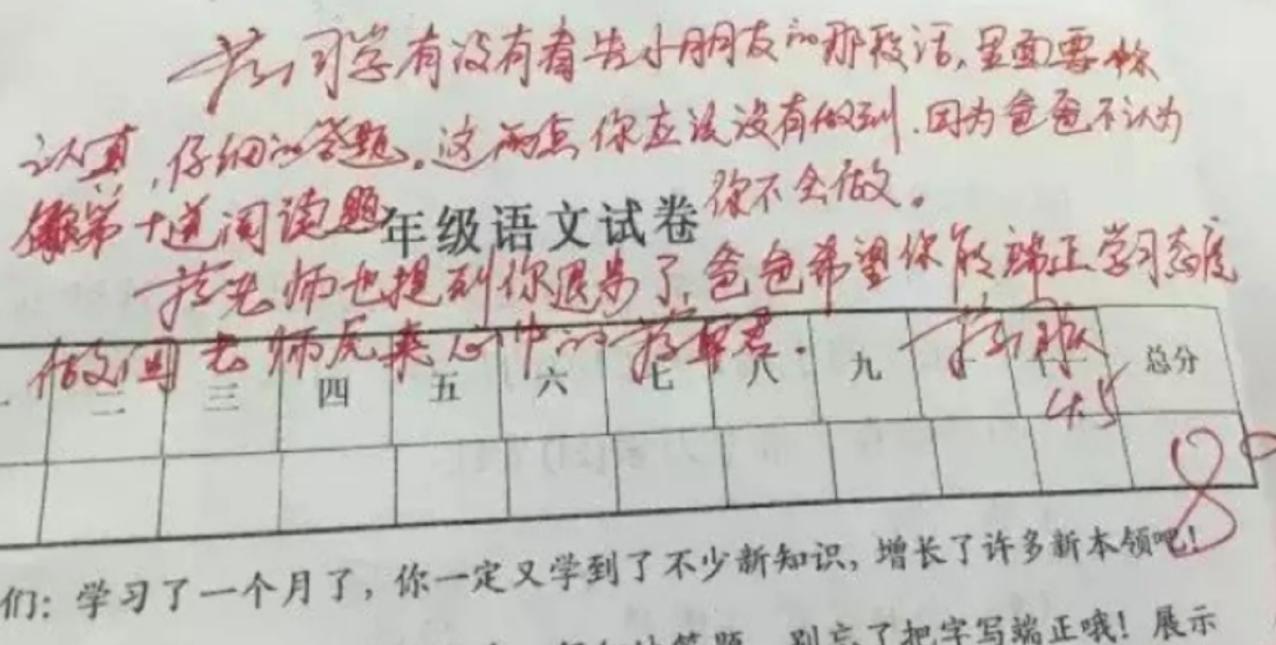 蒋同学有没有看告小朋友的那段话,里面要你
认真,仔细的答题。这两点你应该没有做到.因为爸爸不认为
第十道阅读题
你不会做。
年级语文试卷
蒋老师也提到你退步了,爸爸希望你能端正学习态度
做回老师原来心中的蒋
二 三 四 五 六 七 八 九 总分
4.5
80
们:学习了一个月了,你一定又学到了不少新知识,增长了许多新本领吧!
答题,别忘了把字写端正哦!展示